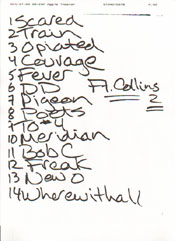 1 Scared
2 Train
3 Opiated
4 Courage
5 Fever
6 DD
7 Pigeon
8 Poets
9 To #4
10 Meridian
11 Bob C
12 Freak
13 New O
14 Wherewithall
Ft. Collins
2